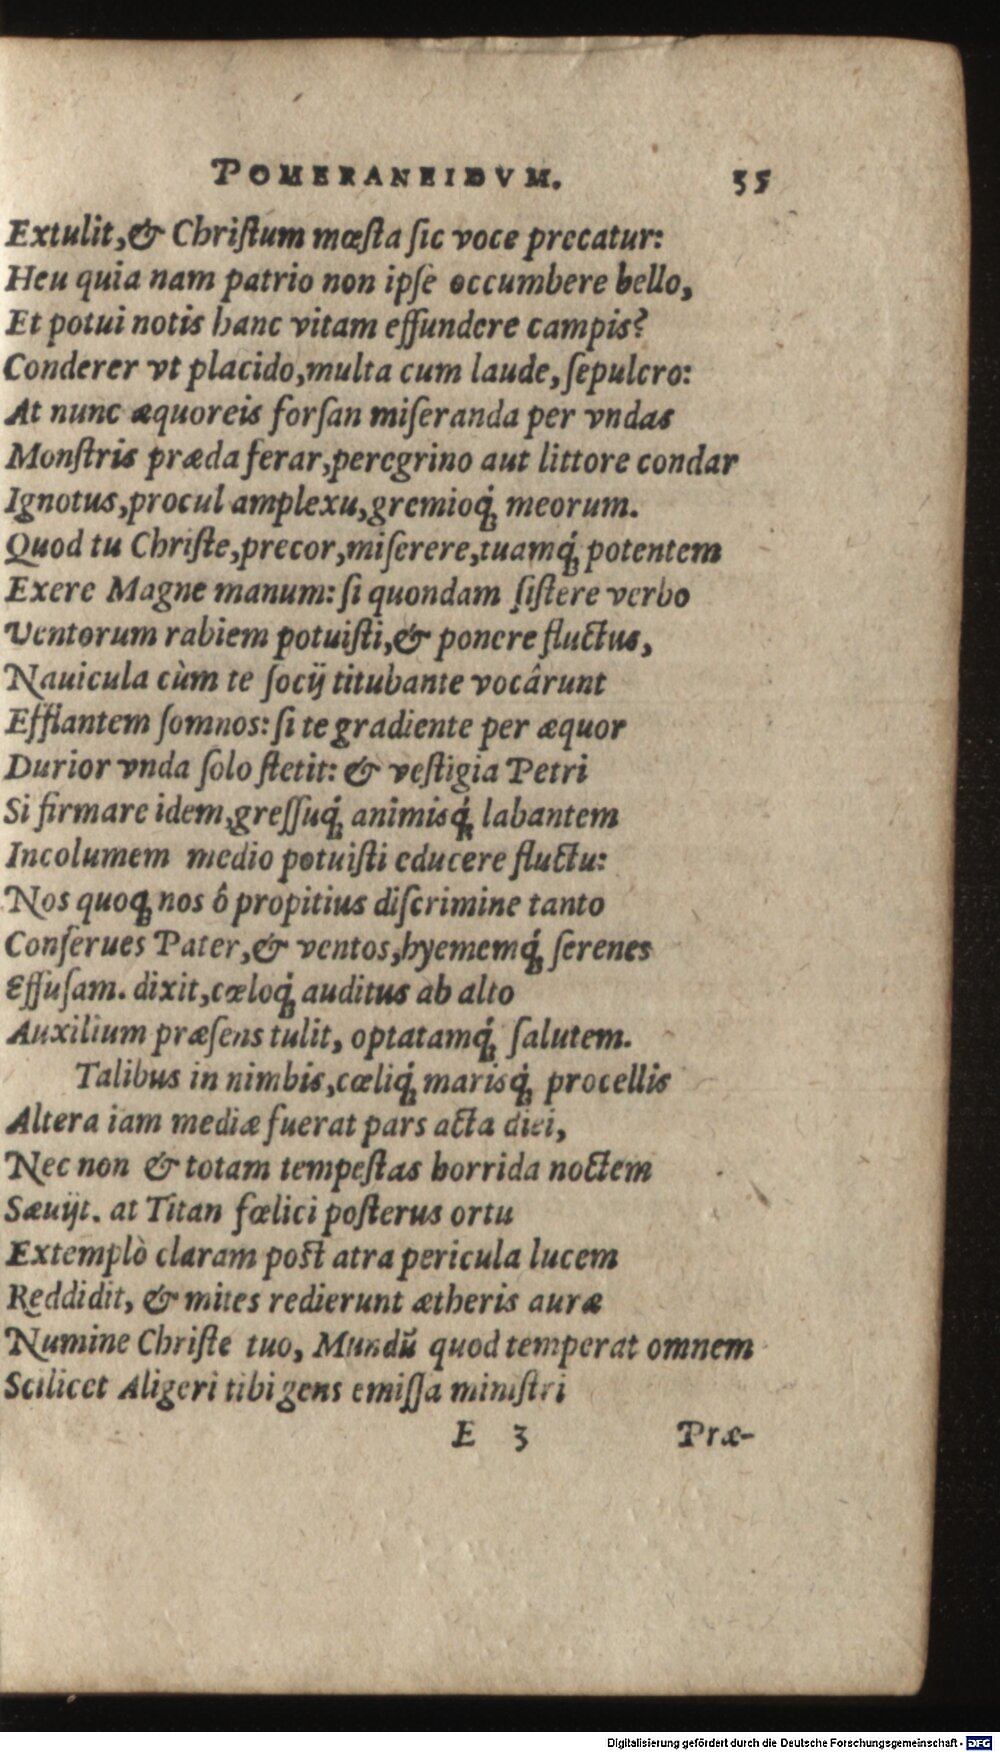 POMERANEIDVM. 35
Extulit,& Chriſtum mœſta ſic voce precatur:
Heu quia nam patrio non ipſe occumbere bello,
Et potui notis hanc vitam effundere campis?
Conderer vt placido,multa cum laude,ſepulcro:
At nunc æquoreis forſan miſeranda per vndas
Monſtris præda ferar,peregrino aut littore condar
Ignotus,procul amplexu,gremioq́; meorum.
Quod tu Chriſte,precor,miſerere,tuamq́; potentem
Exere Magne manum: ſi quondam ſiſtere verbo
Ventorum rabiem potuiſti,& ponere fluctus,
Nauicula cùm te ſocij titubante vocârunt
Efflantem ſomnos: ſi te gradiente per æquor
Durior vnda ſolo ſtetit: & veſtigia Petri
Si firmare idem,greſſuq́; animisq́; labantem
Incolumem medio potuiſti educere fluctu:
Nos quoq; nos ô propitius diſcrimine tanto
Conſerues Pater,& ventos,hyememq́; ſerenes
Effuſam. dixit,cœloq́; auditus ab alto
Auxilium præſens tulit, optatamq́; ſalutem.
Talibus in nimbis,cœliq́; marisq́; procellis
Altera iam mediæ fuerat pars acta diei,
Nec non & totam tempeſtas horrida noctem
Sæuijt. at Titan fœlici poſterus ortu
Extemplò claram poſt atra pericula lucem
Reddidit, & mites redierunt ætheris auræ
Numine Chriſte tuo, Mundũ quod temperat omnem
Scilicet Aligeri tibi gens emiſſa miniſtri
E 3 Præ-
Digitalisierung gefördert durch die Deutsche Forschungsgemeinschaft - DFG